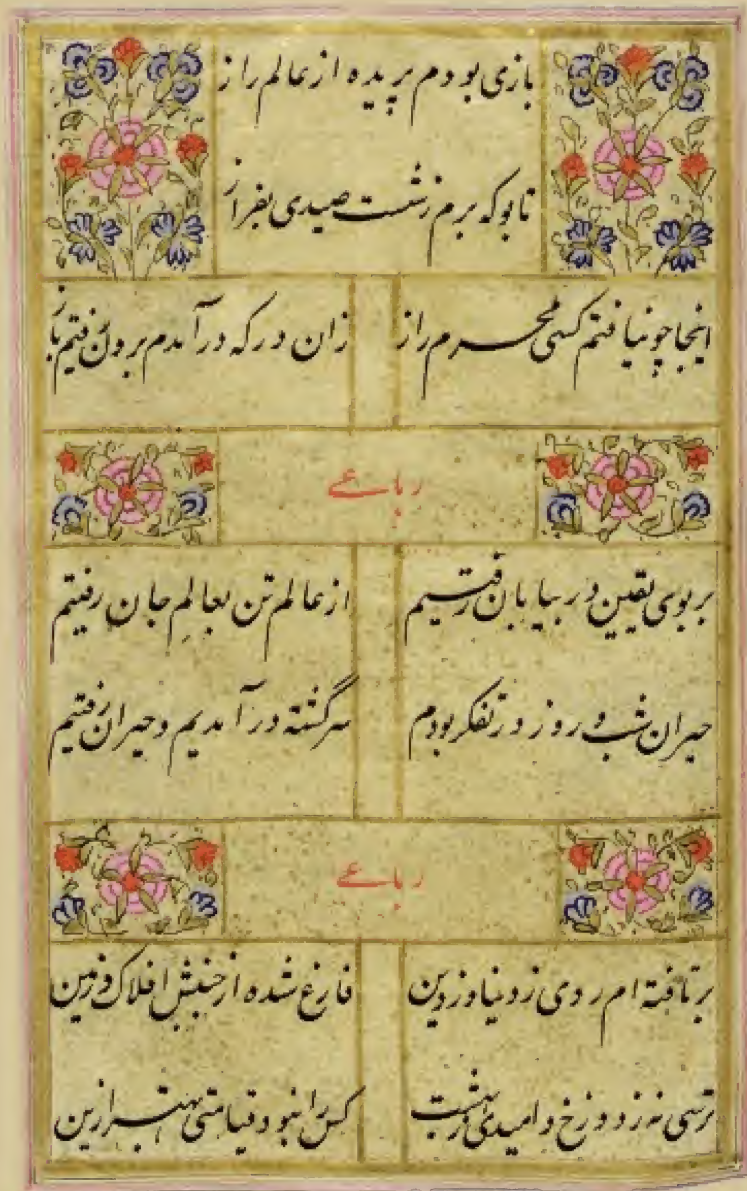 بازی بودم پریده از عالم راز
تا بو که برم ز شت صیدی بفراز
اینجا چو نیافتم کسی محرم راز
زان در که در آمدم برون رفتم باز
رباعے
بر بوی یقین در بیابان رفتیم
از عالم تن بعالم جان رفتیم
حیران شب و روز در تفکر بودم
سرگشته در آمدیم و حیران رفتیم
رباعے
بر تافته ام روی ز دنیا و ز دین
فارغ شده از جنبش افلاک و زمین
ترسی نه ز دوزخ و امیدی ز بهشت
کس را نبود قیامتی بهتر ازین